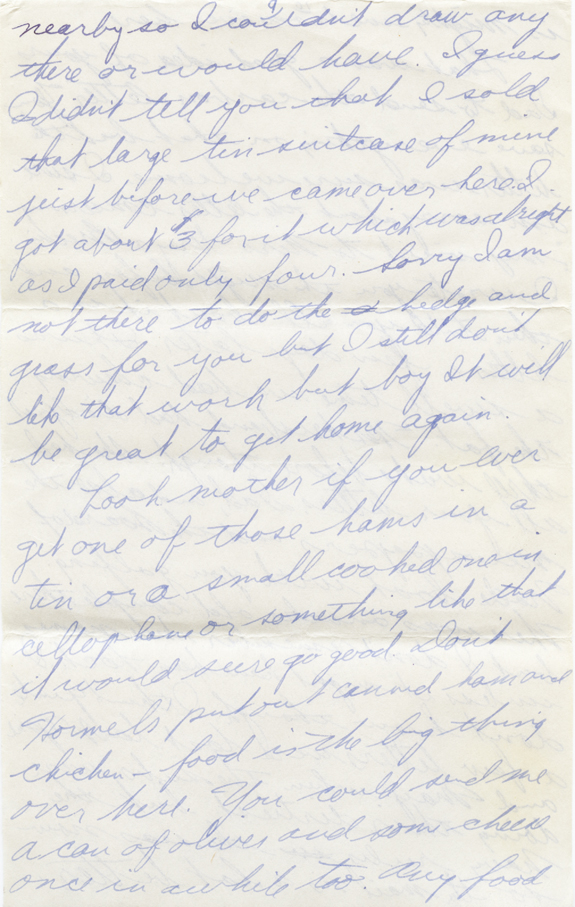 nearby so I couldn't draw any
there or would have. I guess
I didn't tell you that I sold
that large tin suitcase of mine
just before we came over here. I
got about $3 for it which was alright
as I paid only four. Sorry I am
not there to do the hedge and
grass for you but I still don't
like that work but boy It will
be great to get home again.
Look mother if you ever
get one of those hams in a
tin or a small cooked one in
cellophane or something like that
it would sure go good. Don't
Hormels' put out canned ham and
chicken - food is the big thing
over here. You could send me
a can of olives and some cheese
once in awhile too. Any food